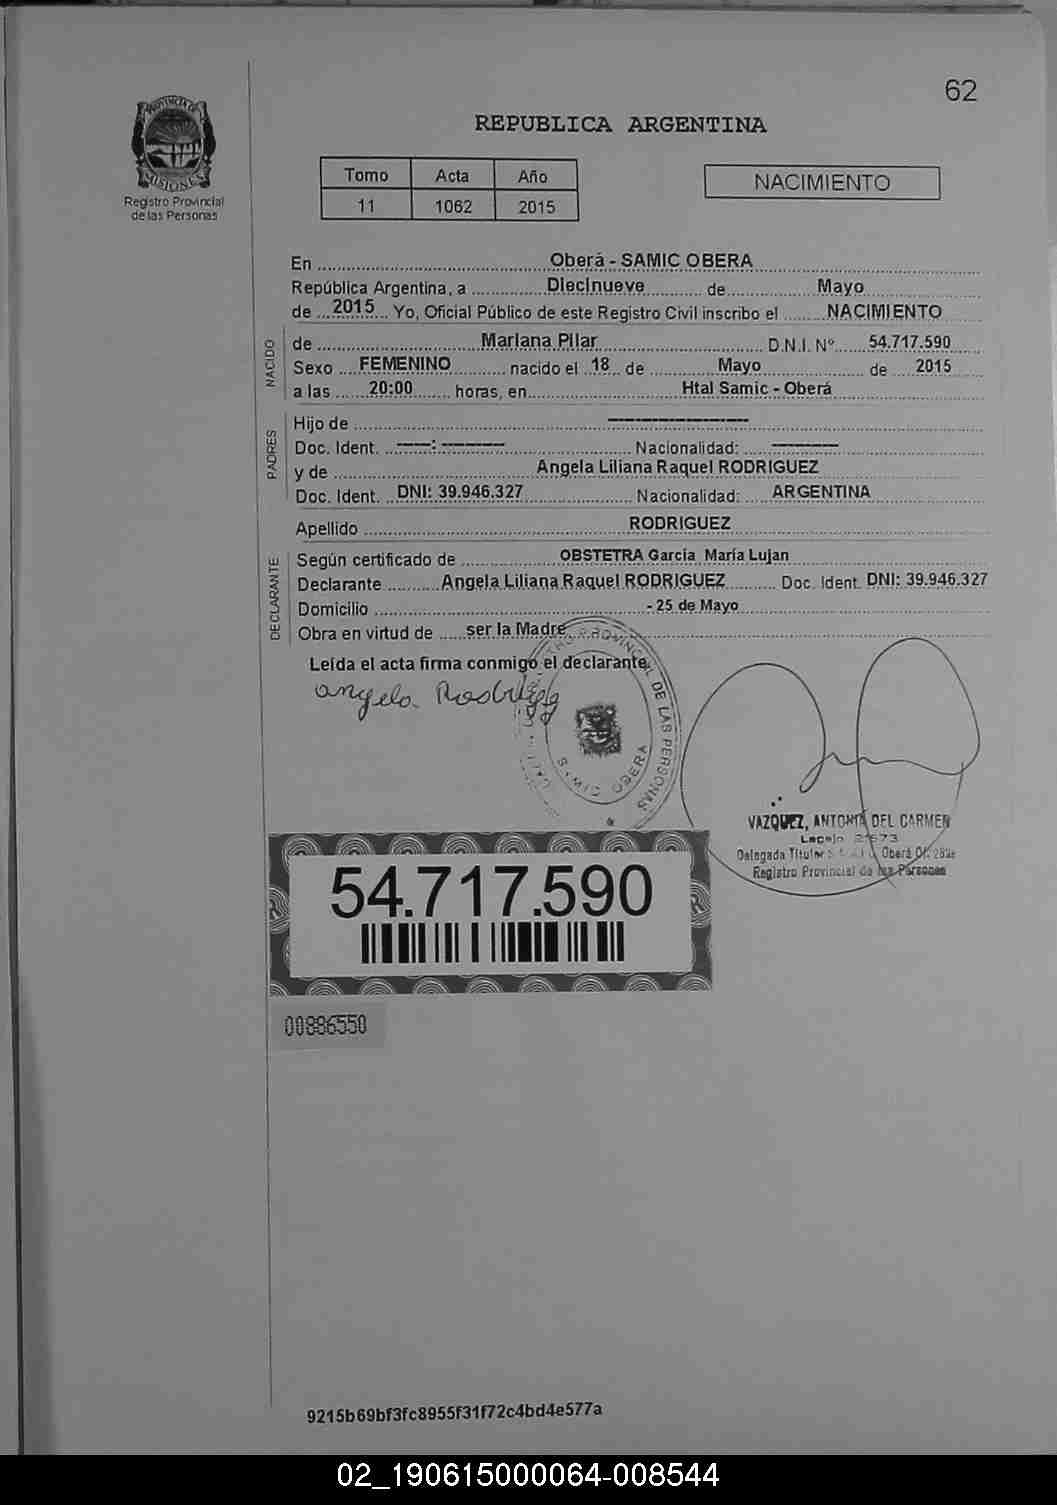 62
PROVINCIA DE
MISIONES
Registro Provincial
de las Personas
REPUBLICA ARGENTINA
Tomo Acta Año
11 1062 2015
NACIMIENTO
En Oberá - SAMIC OBERA
República Argentina, a Diecinueve de Mayo
de 2015 Yo, Oficial Público de este Registro Civil inscribo el NACIMIENTO
NACIDO
de Mariana Pilar D.N.I. Nº 54.717.590
Sexo FEMENINO nacido el 18 de Mayo de 2015
a las 20:00 horas, en Htal Samic - Oberá
PADRES
Hijo de --------------------
Doc. Ident. -----: --------- Nacionalidad: ----------
y de Angela Liliana Raquel RODRIGUEZ
Doc. Ident. DNI: 39.946.327 Nacionalidad: ARGENTINA
Apellido RODRIGUEZ
DECLARANTE
Según certificado de OBSTETRA Garcia María Lujan
Declarante Angela Liliana Raquel RODRIGUEZ Doc. Ident. DNI: 39.946.327
Domicilio - 25 de Mayo
Obra en virtud de ser la Madre
Leída el acta firma conmigo el declarante
Angela Rodriguez
PROVINCIAL DE LAS PERSONAS
SAMIC OBERA
VAZQUEZ, ANTONIA DEL CARMEN
Legajo
Delegada Titular Oberá
Registro Provincial de las Personas
54.717.590
00886550
9215b69bf3fc8955f31f72c4bd4e577a
02_190615000064-008544